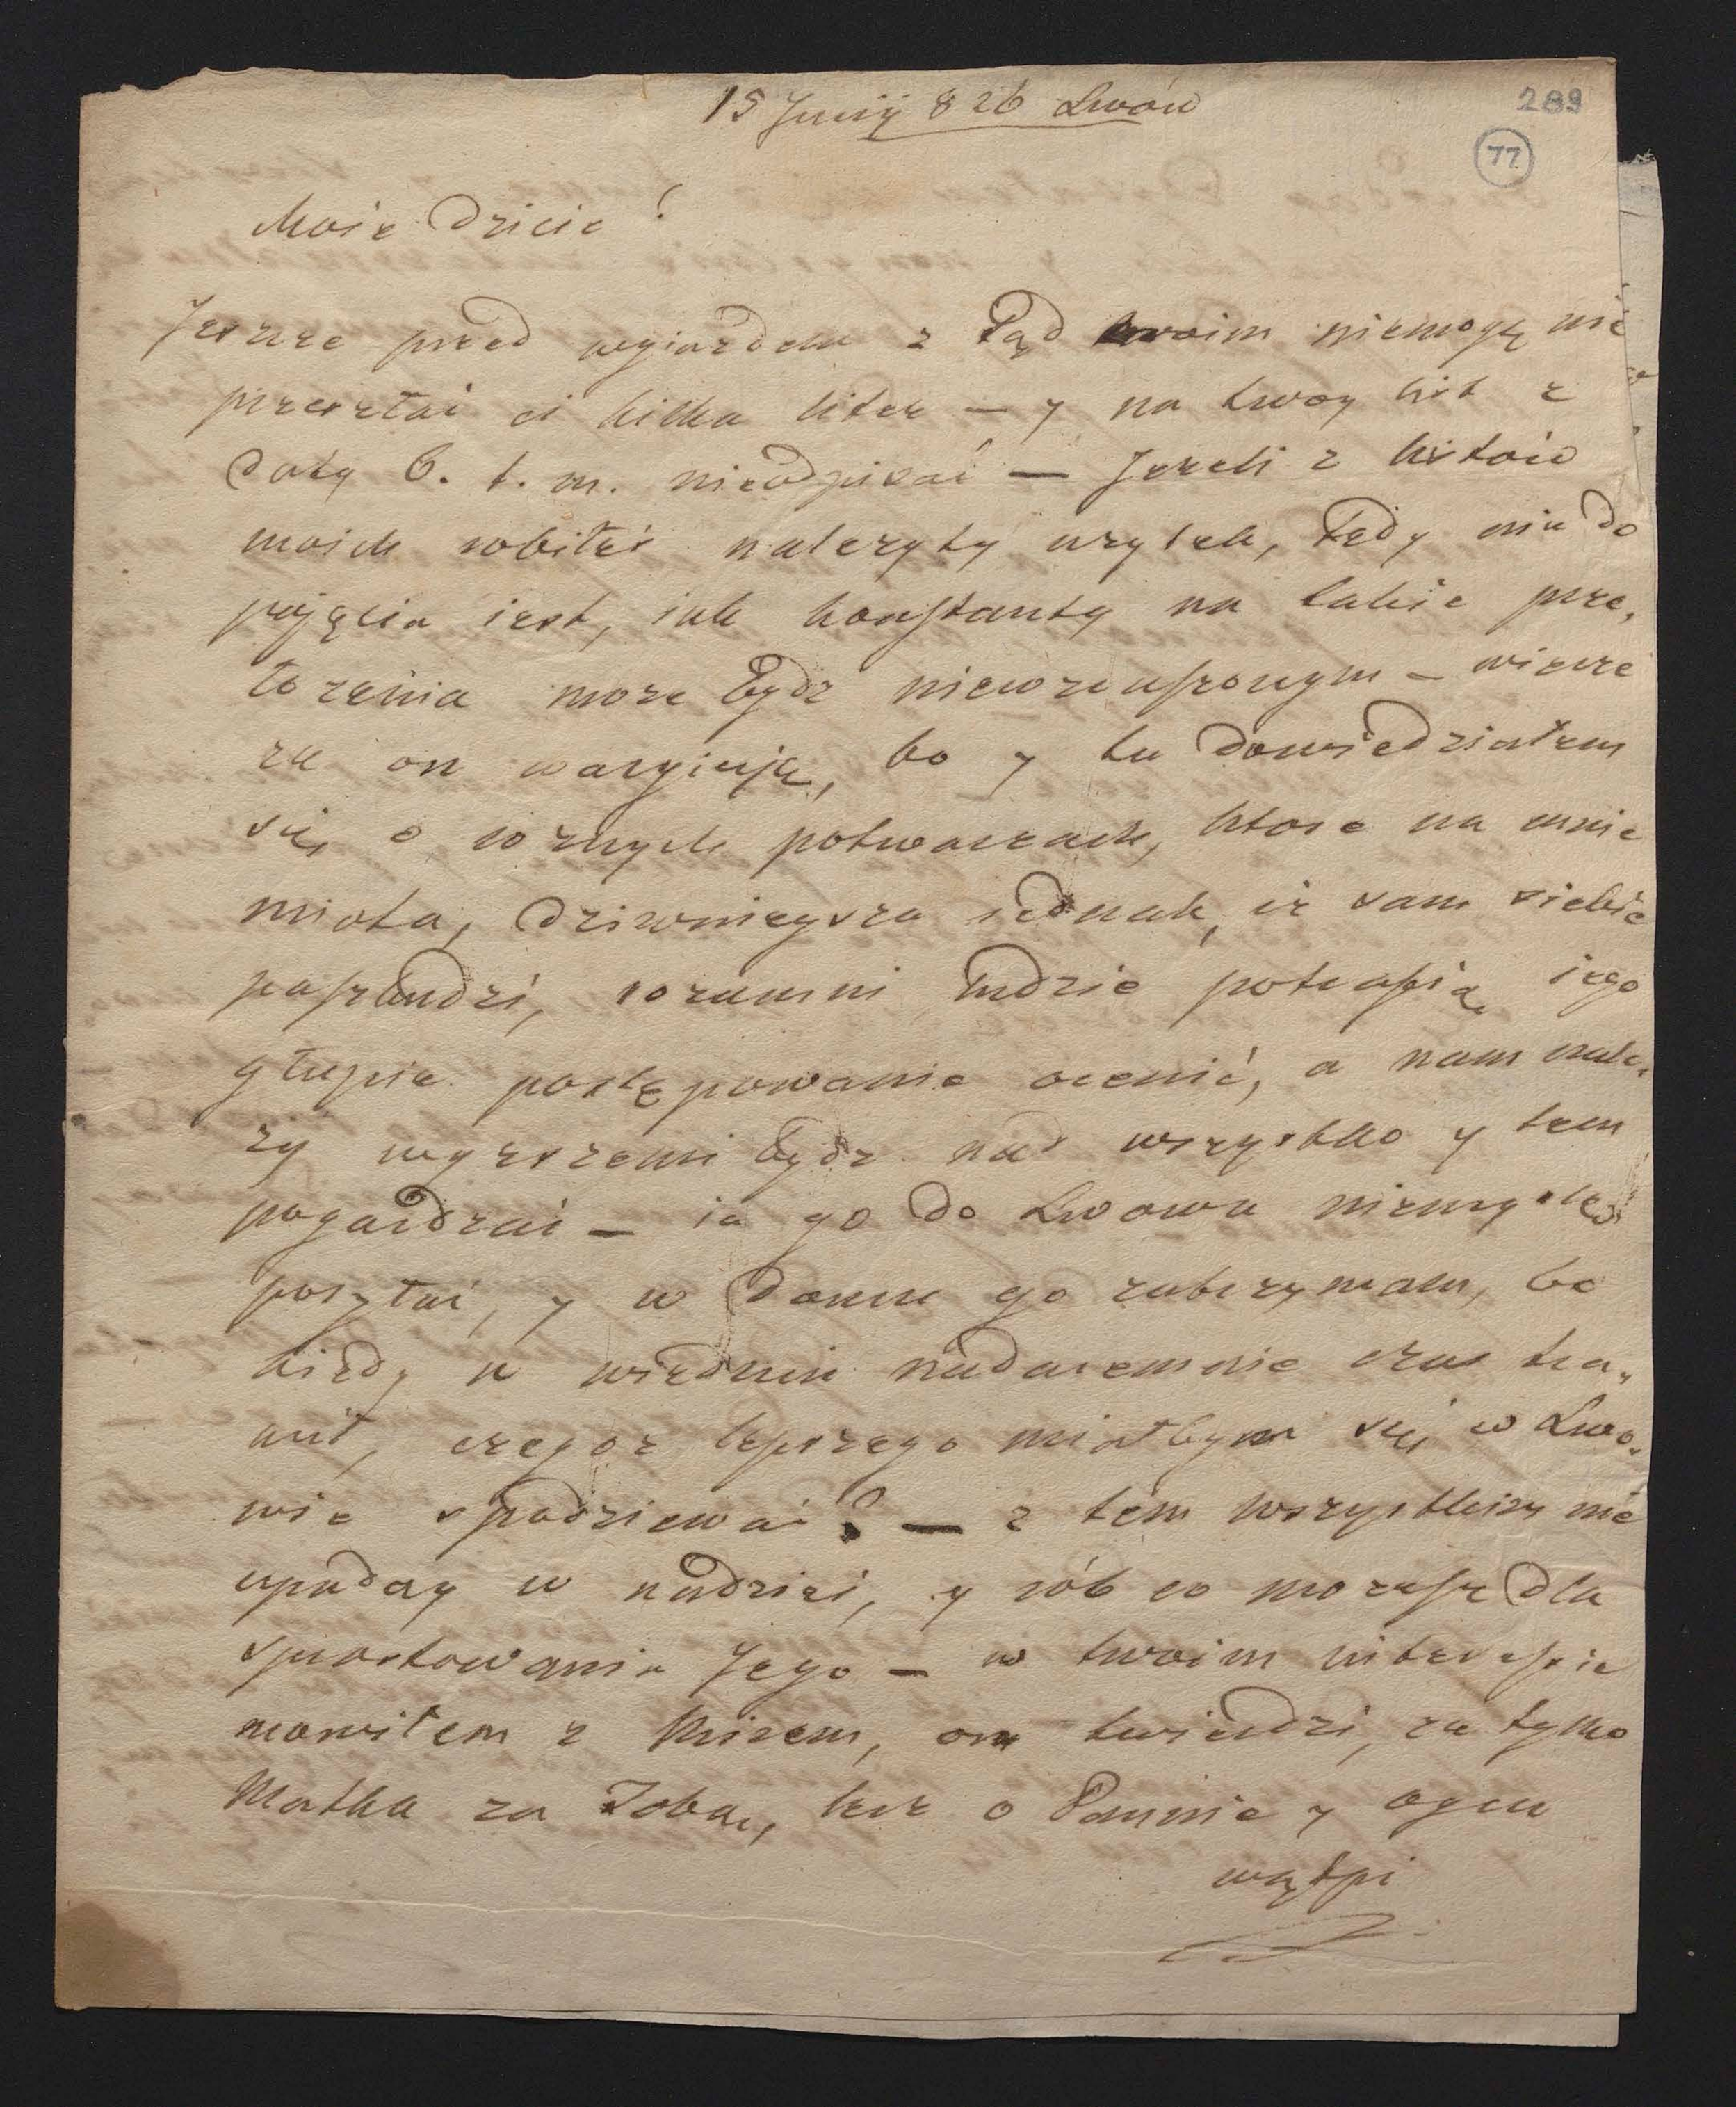 15 Junij 826 Lwow
289
77
Moie Dziecie!
Jeszcze przed wyiazdem z tąd moim niemogę nie
przesłac ci kilka liter — y na twoy list z
daty 6. t. m. nieodpisać — Jezeli z listów
moich robiłeś nalezyty uzytek, tedy nie do
pojęcia iest, iak Konstanty na takie prze,
łozenia moze bydz niewzruszonym — wierze
ze on waryiuje, bo y tu dowiedziałem
się o roznych potwarzach, ktore na mnie
miota, dziwnieysza iednak, iz sam siebie
paskudzi, rozumni ludzie potrafią iego
głupie postępowanie ocenić, a nam nale,
zy wyzszemi bydz nad wszystko y tem
pogardzać — ia go do Lwowa niemyslę
posyłać, y w domu go zatrzymam, bo
kiedy w Wiedniu nadaremnie czas tra,
wił, czegoz lepszego miałbym się w Lwo,
wie spodziewać? — z tem wszystkim nie
upaday w nadziei, y rób co mozesz dla
sprostowania Jego — w twoim interesie
mowiłem z , on twierdzi, ze tylko
Matka za Tobą, lecz o Pannie y oycu
wątpi